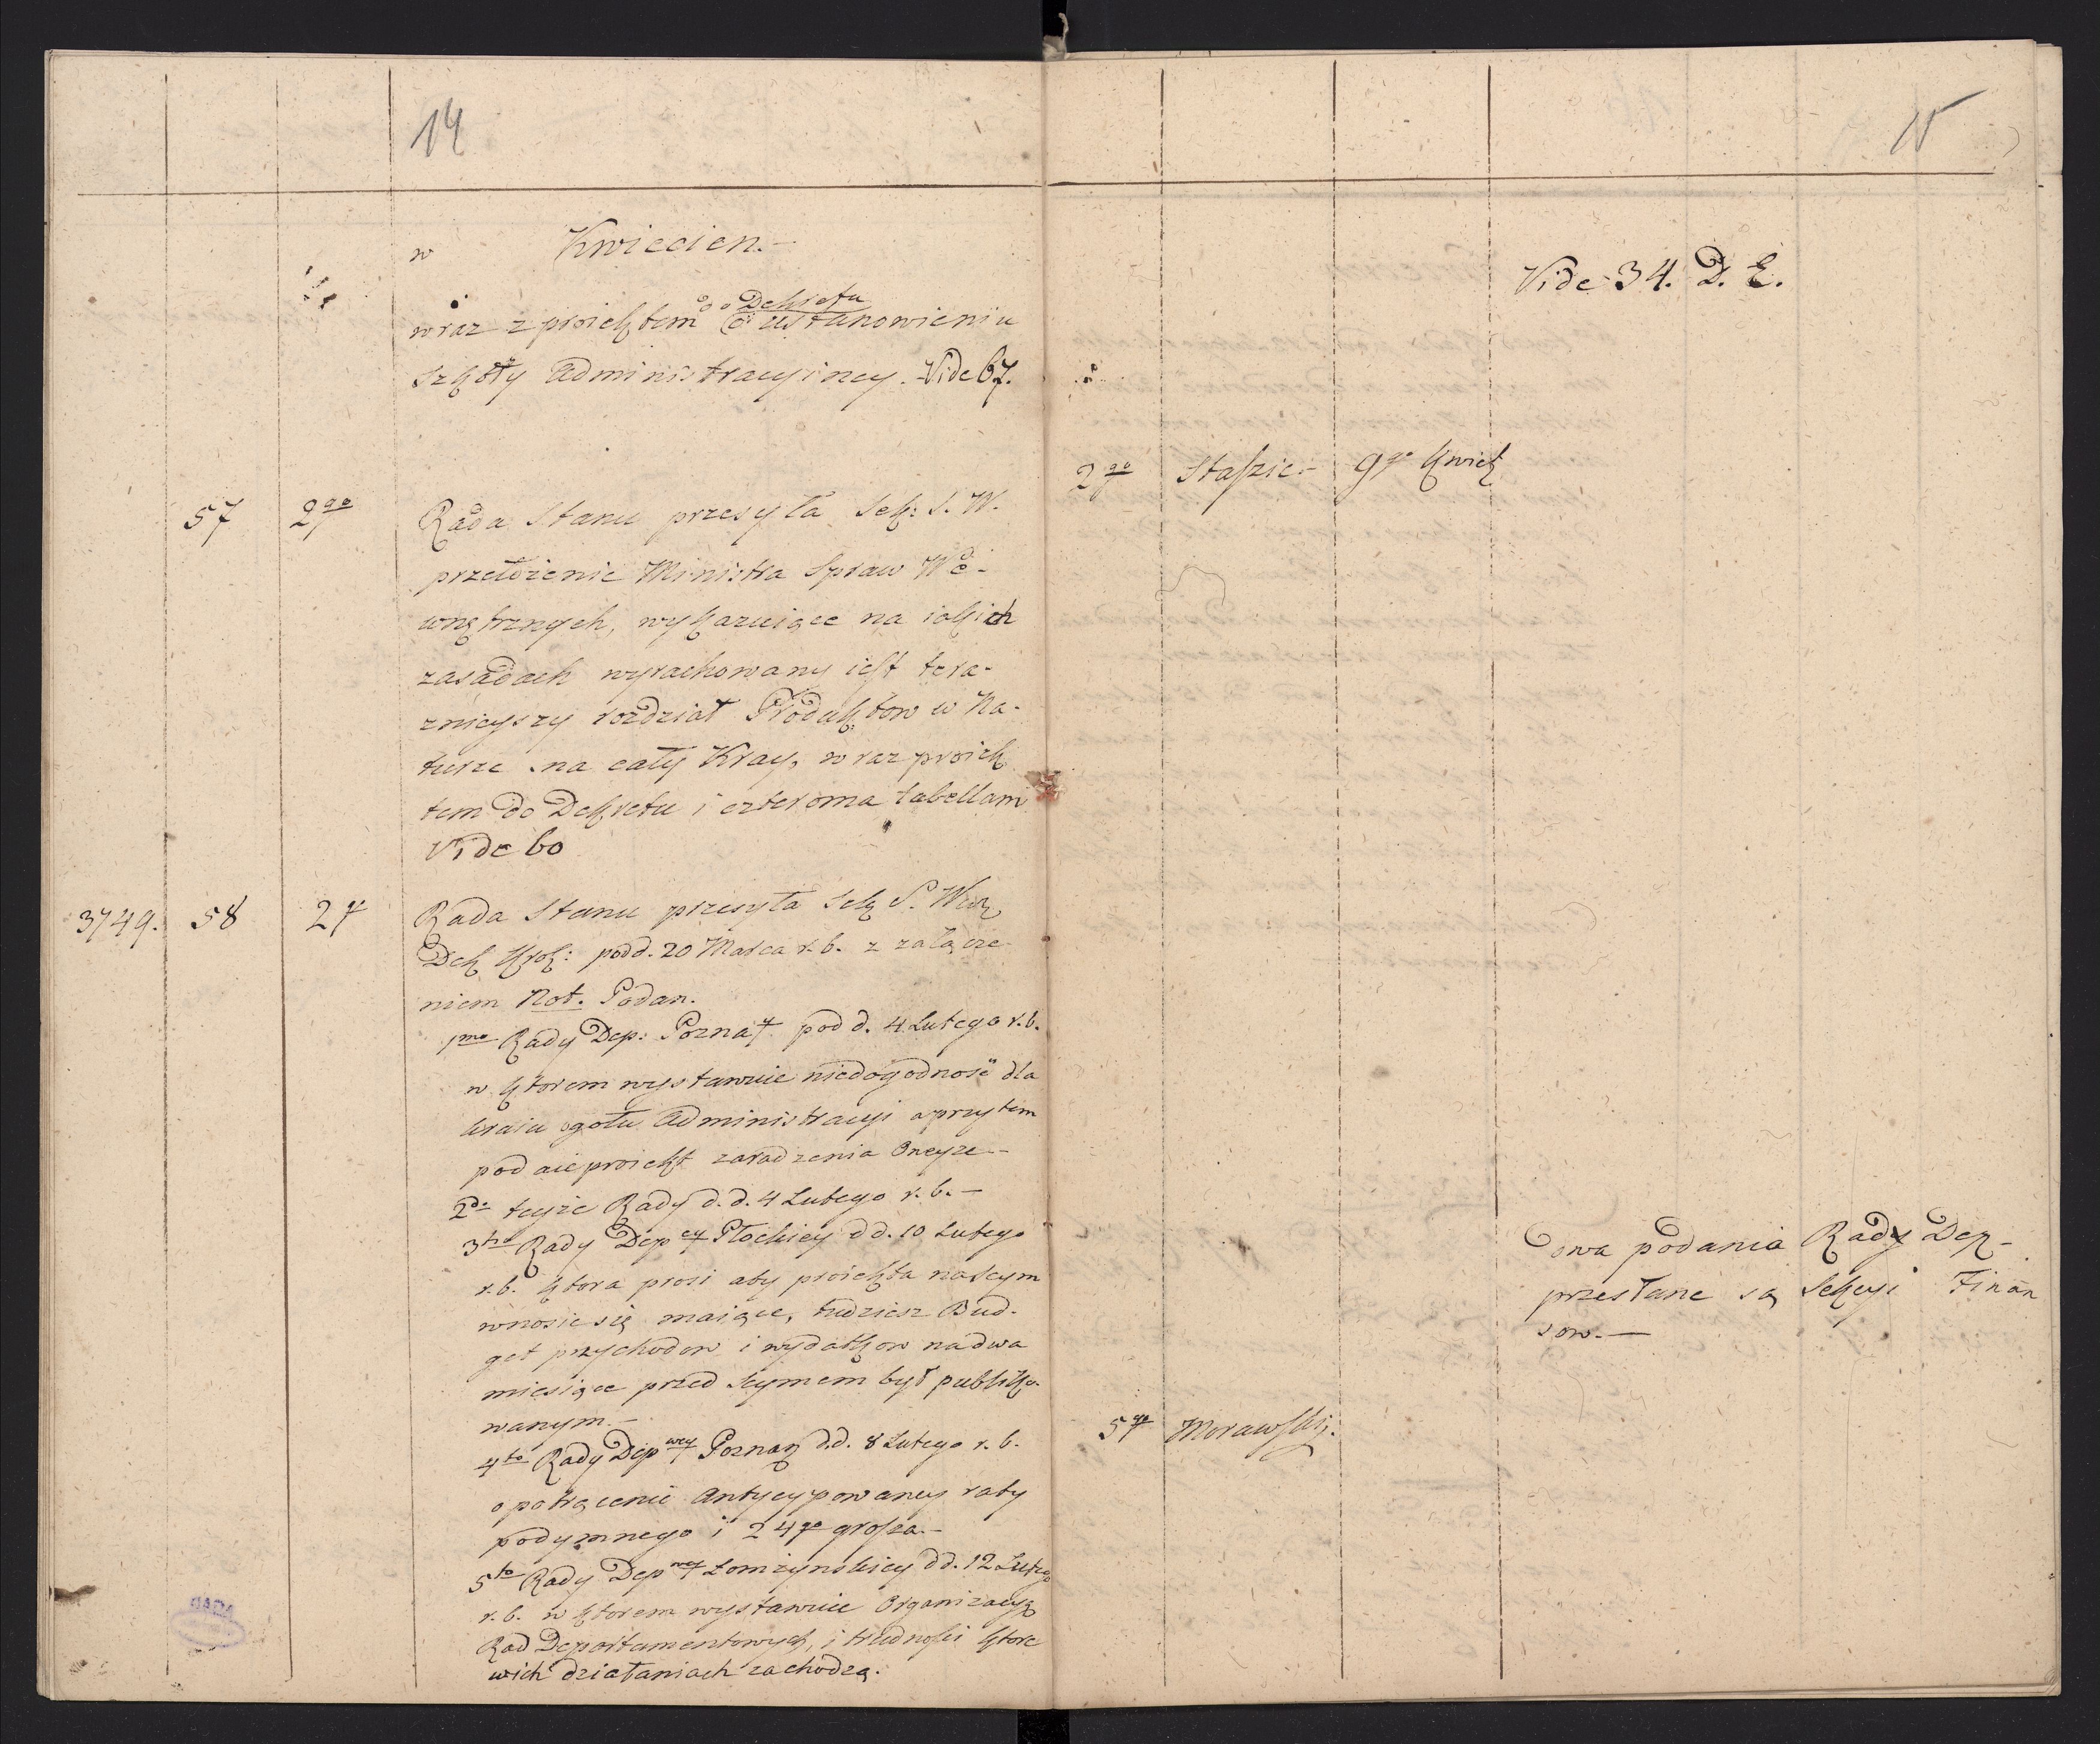 14
w Kwiecien.-
Dekretu
wraz z proiektem o ustanowieniu
Szkoły Administracyiney. Vide 67.
57 2go Rada Stanu przesyła Sek: S. W.
przełożenie Ministra Spraw We-
wnętrznych, wykazuiące na iakich
zasadach wyrachowany iest tera-
znieyszy rozdział Produktow w Na-
turze na cały Kray, wraz proiek
tem do Dekretu i czteroma tabellami
Vide 60
3749. 58 2go Rada Stanu przesyła Sek S. Wew
Dek Krol: pod d. 20 Marca r. b. z załącze
niem Not. Podan.
1mo Rady Dep: Poznay pod d. 4 Lutego r. b.
w ktorem wystawuie niedogodność dla
kraiu ogołu Administracyi a przytem
podaie proiekt zaradzenia oneyze.-
2do teyże Rady d. d. 4 Lutego r. b. -
3tio Rady Dep ey Płockiey d d. 10 Lutego
r. b. ktora prosi aby proiekta na Seym
wnosic się maiące, tudziesz Bud-
get przychodow i wydatkow na dwa
miesiące przed Seymem był publiko-
wanym.-
4to Rady Dep wey Poznań d. d. 8 Lutego r. b.
o potrącenie Antycypowaney raty
podymnego i 24go grosza.-
5to Rady Dep wey Łomżynskiey d d. 12 Lutego
r. b. w ktorem wystawuie Organizacyą
Rad Departamentowych, i trudności ktore
w ich działaniach zachodzą.
15
Vide 34. D. E.
2go Staszic.- 9go Kwiet
Dwa podania Rady Dep-
przesłane są Sekcyi Finan
sow.-
5go Morawski.